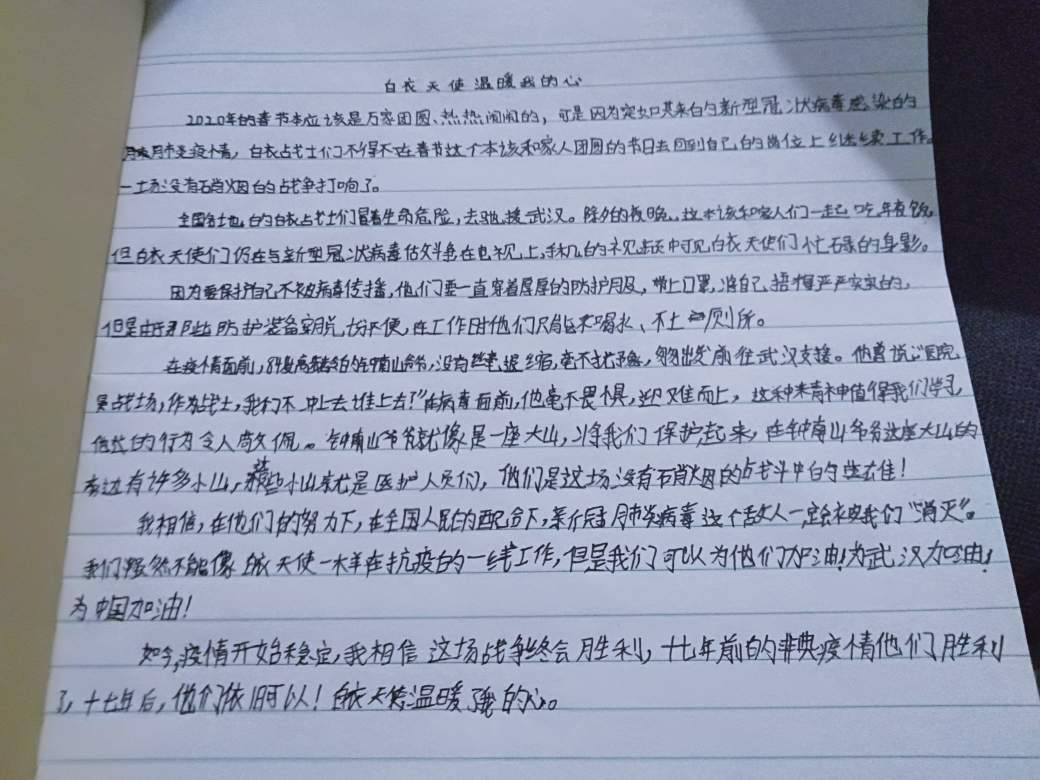 白衣天使温暖我的心
2020年的春节本应该是万家团圆、热热闹闹的，可是因为突如其来的新型冠状病毒感染的
肺炎疫情，白衣战士们不得不在春节这个本该和家人团圆的节日去回到自己的岗位上继续工作。
一场没有硝烟的战争打响了。
全国各地的白衣战士们冒着生命危险，去驰援武汉。除夕的夜晚，本该和家人们一起吃年夜饭，
但白衣天使们仍在与新型冠状病毒做斗争在电视上，手机的视频中可见白衣天使们忙碌的身影。
因为要保护自己不被病毒传播，他们要一直穿着厚厚的防护服，带上口罩，将自己捂得严严实实的，
但是由于那些防护装备穿脱十分不便，在工作时他们只能不喝水、不上厕所。
在疫情面前，84岁高龄的钟南山爷爷，没有丝毫退缩，毫不犹豫，出发前往武汉支援。他曾说："医院
是战场，作为战士，我们不冲上去谁上去？"在病毒面前，他毫不畏惧，迎难而上，这种精神值得我们学习，
他的行为令人敬佩。钟南山爷爷就像是一座大山，将我们保护起来，在钟南山爷爷这座大山的
旁边有许多小山，那些小山就是医护人员们，他们是这场没有硝烟的战斗中的英雄！
我相信，在他们的努力下，在全国人民的配合下，新冠肺炎病毒这个敌人一定会被我们"消灭"。
我们虽然不能像白衣天使一样在抗疫的一线工作，但是我们可以为他们加油！为武汉加油！
为中国加油！
如今，疫情开始稳定，我相信这场战争终会胜利，十七年前的非典疫情他们胜利
了，十七年后，他们依旧可以！白衣天使温暖了我的心。